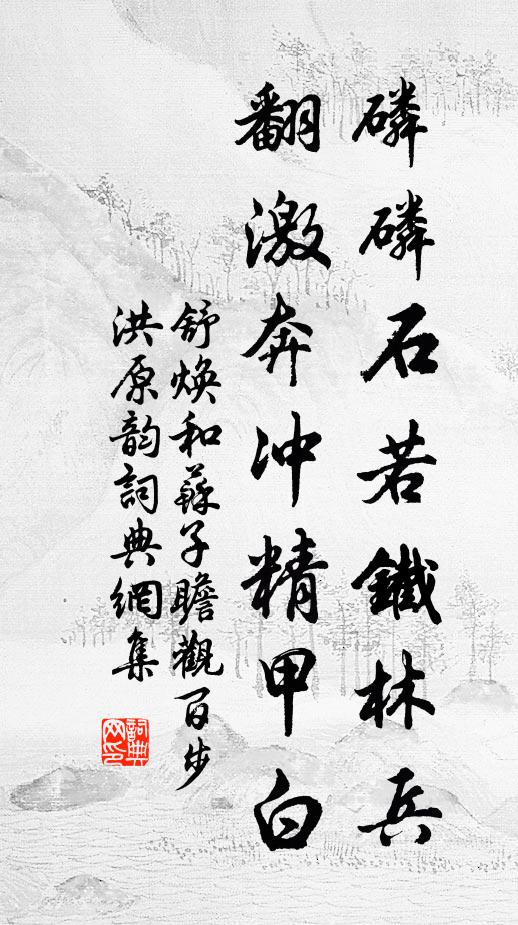 磷磷石若鐵林兵
翻激奔沖精甲白
舒煥和蘇子瞻觀百步
洪原韵詞典網集
詞典网印